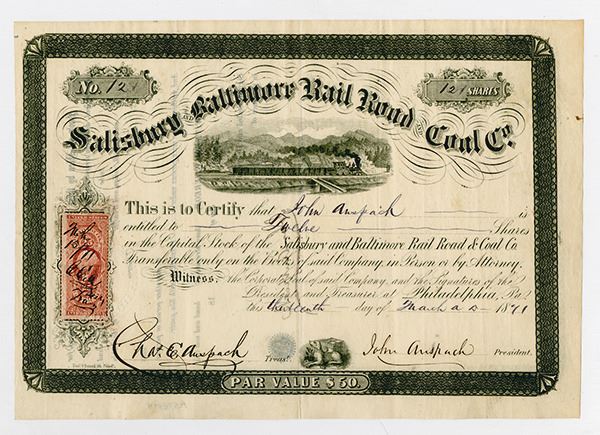 No. 12
12 SHARES
Salisbury AND Baltimore Rail Road AND Coal Co.
This is to Certify that John Anspach is
entitled to Twelve Shares
in the Capital Stock of the Salisbury and Baltimore Rail Road & Coal Co.
Transferable only on the Books of said Company, in Person or by Attorney.
Witness. the Corporate Seal of said Company, and the Signatures of the
President and Treasurer at Philadelphia, Pa.
this thirteenth day of March A D 1871
Chas. E. Anspach Treasr. John Anspach President.
PAR VALUE $50.